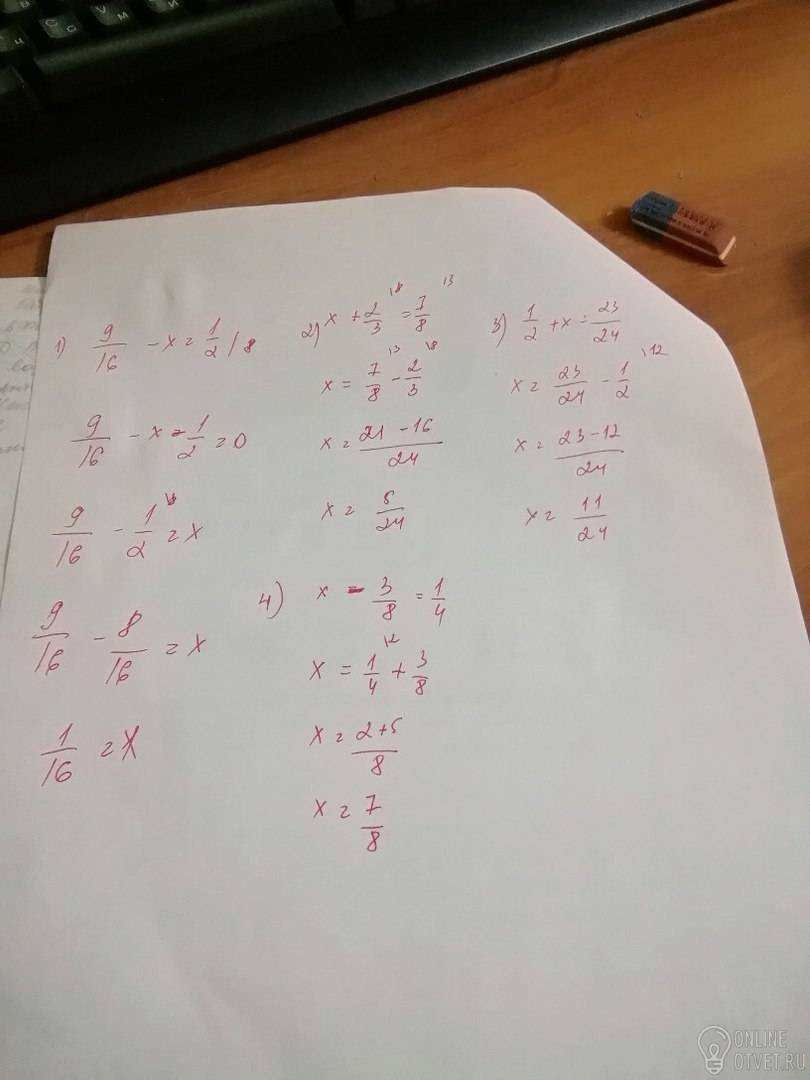 1) 9/16 - x = 1/2 / 8
9/16 - x - 1/2 = 0
9/16 - 1/2 \8 = x
9/16 - 8/16 = x
1/16 = x
2) x + 2/3 \8 = 7/8 \3
x = 7/8 \3 - 2/3 \8
x = 21 - 16/24
x = 5/24
3) 1/2 + x = 23/24
x = 23/24 - 1/2 \12
x = 23-12/24
x = 11/24
4) x - 3/8 = 1/4
x = 1/4 \2 + 3/8
x = 2+5/8
x = 7/8
ONLINE
OTVET.RU